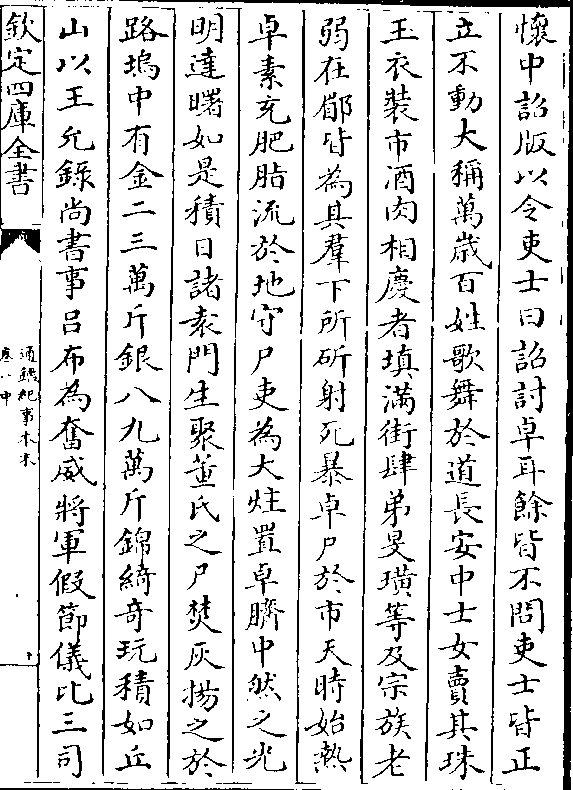 懐中詔版以令吏士曰詔討卓耳餘皆不問吏士皆正
立不動大稱萬歳百姓歌舞於道長安中士女賣其珠
玉衣裝市酒肉相慶者填滿街肆弟旻璜等及宗族老
弱在郿皆為其羣下所斫射死暴卓尸於市天時始熱
卓素充肥脂流於地守尸吏為大炷置卓臍中然之光
明達曙如是積日諸袁門生聚董氏之尸焚灰揚之於
路塢中有金二三萬斤銀八九萬斤錦綺奇玩積如丘
山以王允錄尚書事吕布為奮威將軍假節儀比三司
欽定四庫全書
通鑑紀事本末
卷八中